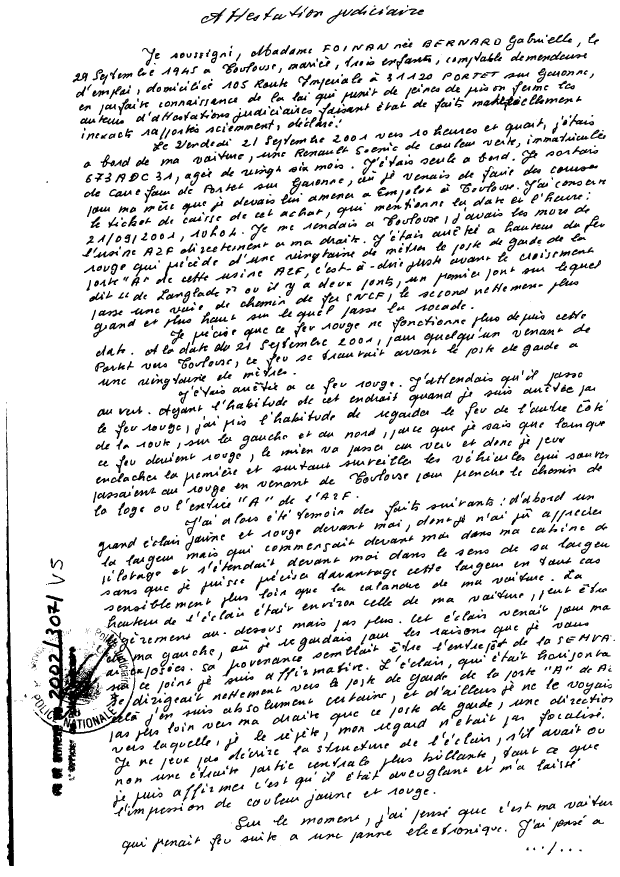 Attestation judiciaire
Je soussigné, Madame FOINAN née BERNARD Gabrielle, le
29 Septembre 1945 à Toulouse, mariée, trois enfants, comptable demandeuse
d'emploi, domiciliée 105 Route Impériale à 31120 PORTET sur Garonne,
en parfaite connaissance de la loi qui punit de peines de prison ferme les
auteurs d'attestations judiciaires faisant état de faits matériellement
inexacts rapportés sciemment, déclare :
Le Vendredi 21 Septembre 2001 vers 10 heures et quart, j'étais
à bord de ma voiture, une Renault Scenic de couleur verte, immatriculée
673 ADC 31, agée de vingt six mois. J'étais seule à bord. Je sortais
de Carrefour de Portet sur Garonne, où je venais de faire des courses
pour ma mère que je devais lui amener à Empalot à Toulouse. J'ai conservé
le ticket de caisse de cet achat, qui mentionne la date et l'heure :
21/09/2001, 10h04. Je me rendais à Toulouse, j'avais les murs de
l'usine AZF directement à ma droite. J'étais arrêtée à hauteur du feu
rouge qui précède d'une vingtaine de mètres le poste de garde de la
porte "A" de cette usine AZF, c'est-à-dire juste avant le croisement
dit "de Langlade" où il y a deux ponts, un premier pont sur lequel
passe une voie de chemin de fer SNCF, le second nettement plus
grand et plus haut sur lequel passe la rocade.
Je précise que ce feu rouge ne fonctionne plus depuis cette
date. A la date du 21 Septembre 2001, pour quelqu'un venant de
Portet vers Toulouse, ce feu se trouvait avant le poste de garde à
une vingtaine de mètres.
J'étais arrêtée à ce feu rouge. J'attendais qu'il passe
au vert. Ayant l'habitude de cet endroit quand je suis arrêtée par
le feu rouge, j'ai pris l'habitude de regarder le feu de l'autre côté
de la route, sur la gauche et au nord, parce que je sais que lorsque
ce feu devient rouge, le mien va passer au vert et donc je peux
enclencher la première et surtout surveiller les véhicules qui souvent
passaient au rouge en venant de Toulouse pour prendre le chemin de
la loge ou l'entrée "A" de l'AZF.
J'ai alors été témoin des faits suivants : d'abord un
grand éclair jaune et rouge devant moi, dont je n'ai pu apprécier
la largeur mais qui commençait devant moi dans ma cabine de
pilotage et s'étendait devant moi dans le sens de sa largeur
sans que je puisse préciser davantage cette largeur en tout cas
sensiblement plus loin que la calandre de ma voiture. La
hauteur de l'éclair était environ celle de ma voiture, peut être
légèrement au-dessus mais pas plus. Cet éclair venait pour ma
de ma gauche, où je regardais pour les raisons que je vous
ai exposées. Sa provenance semblait être l'entrepôt de la SEMVAT
sur ce point je suis affirmative. L'éclair, qui était horizontal
se dirigeait nettement vers le poste de garde de la porte "A" de AZ
cela j'en suis absolument certaine, et d'ailleurs je ne le voyais
pas plus loin vers ma droite que ce poste de garde, une direction
vers laquelle, je le répète, mon regard n'était pas focalisé.
Je ne peux pas décrire la structure de l'éclair, s'il avait ou
non une étroite partie centrale plus brillante, tout ce que
je puis affirmer c'est qu'il était aveuglant et m'a laissé
l'impression de couleur jaune et rouge.
Sur le moment, j'ai pensé que c'est ma voiture
qui prenait feu suite à une panne électronique. J'ai pensé à
.../...
2002/3071/VS
POLICE NATIONALE